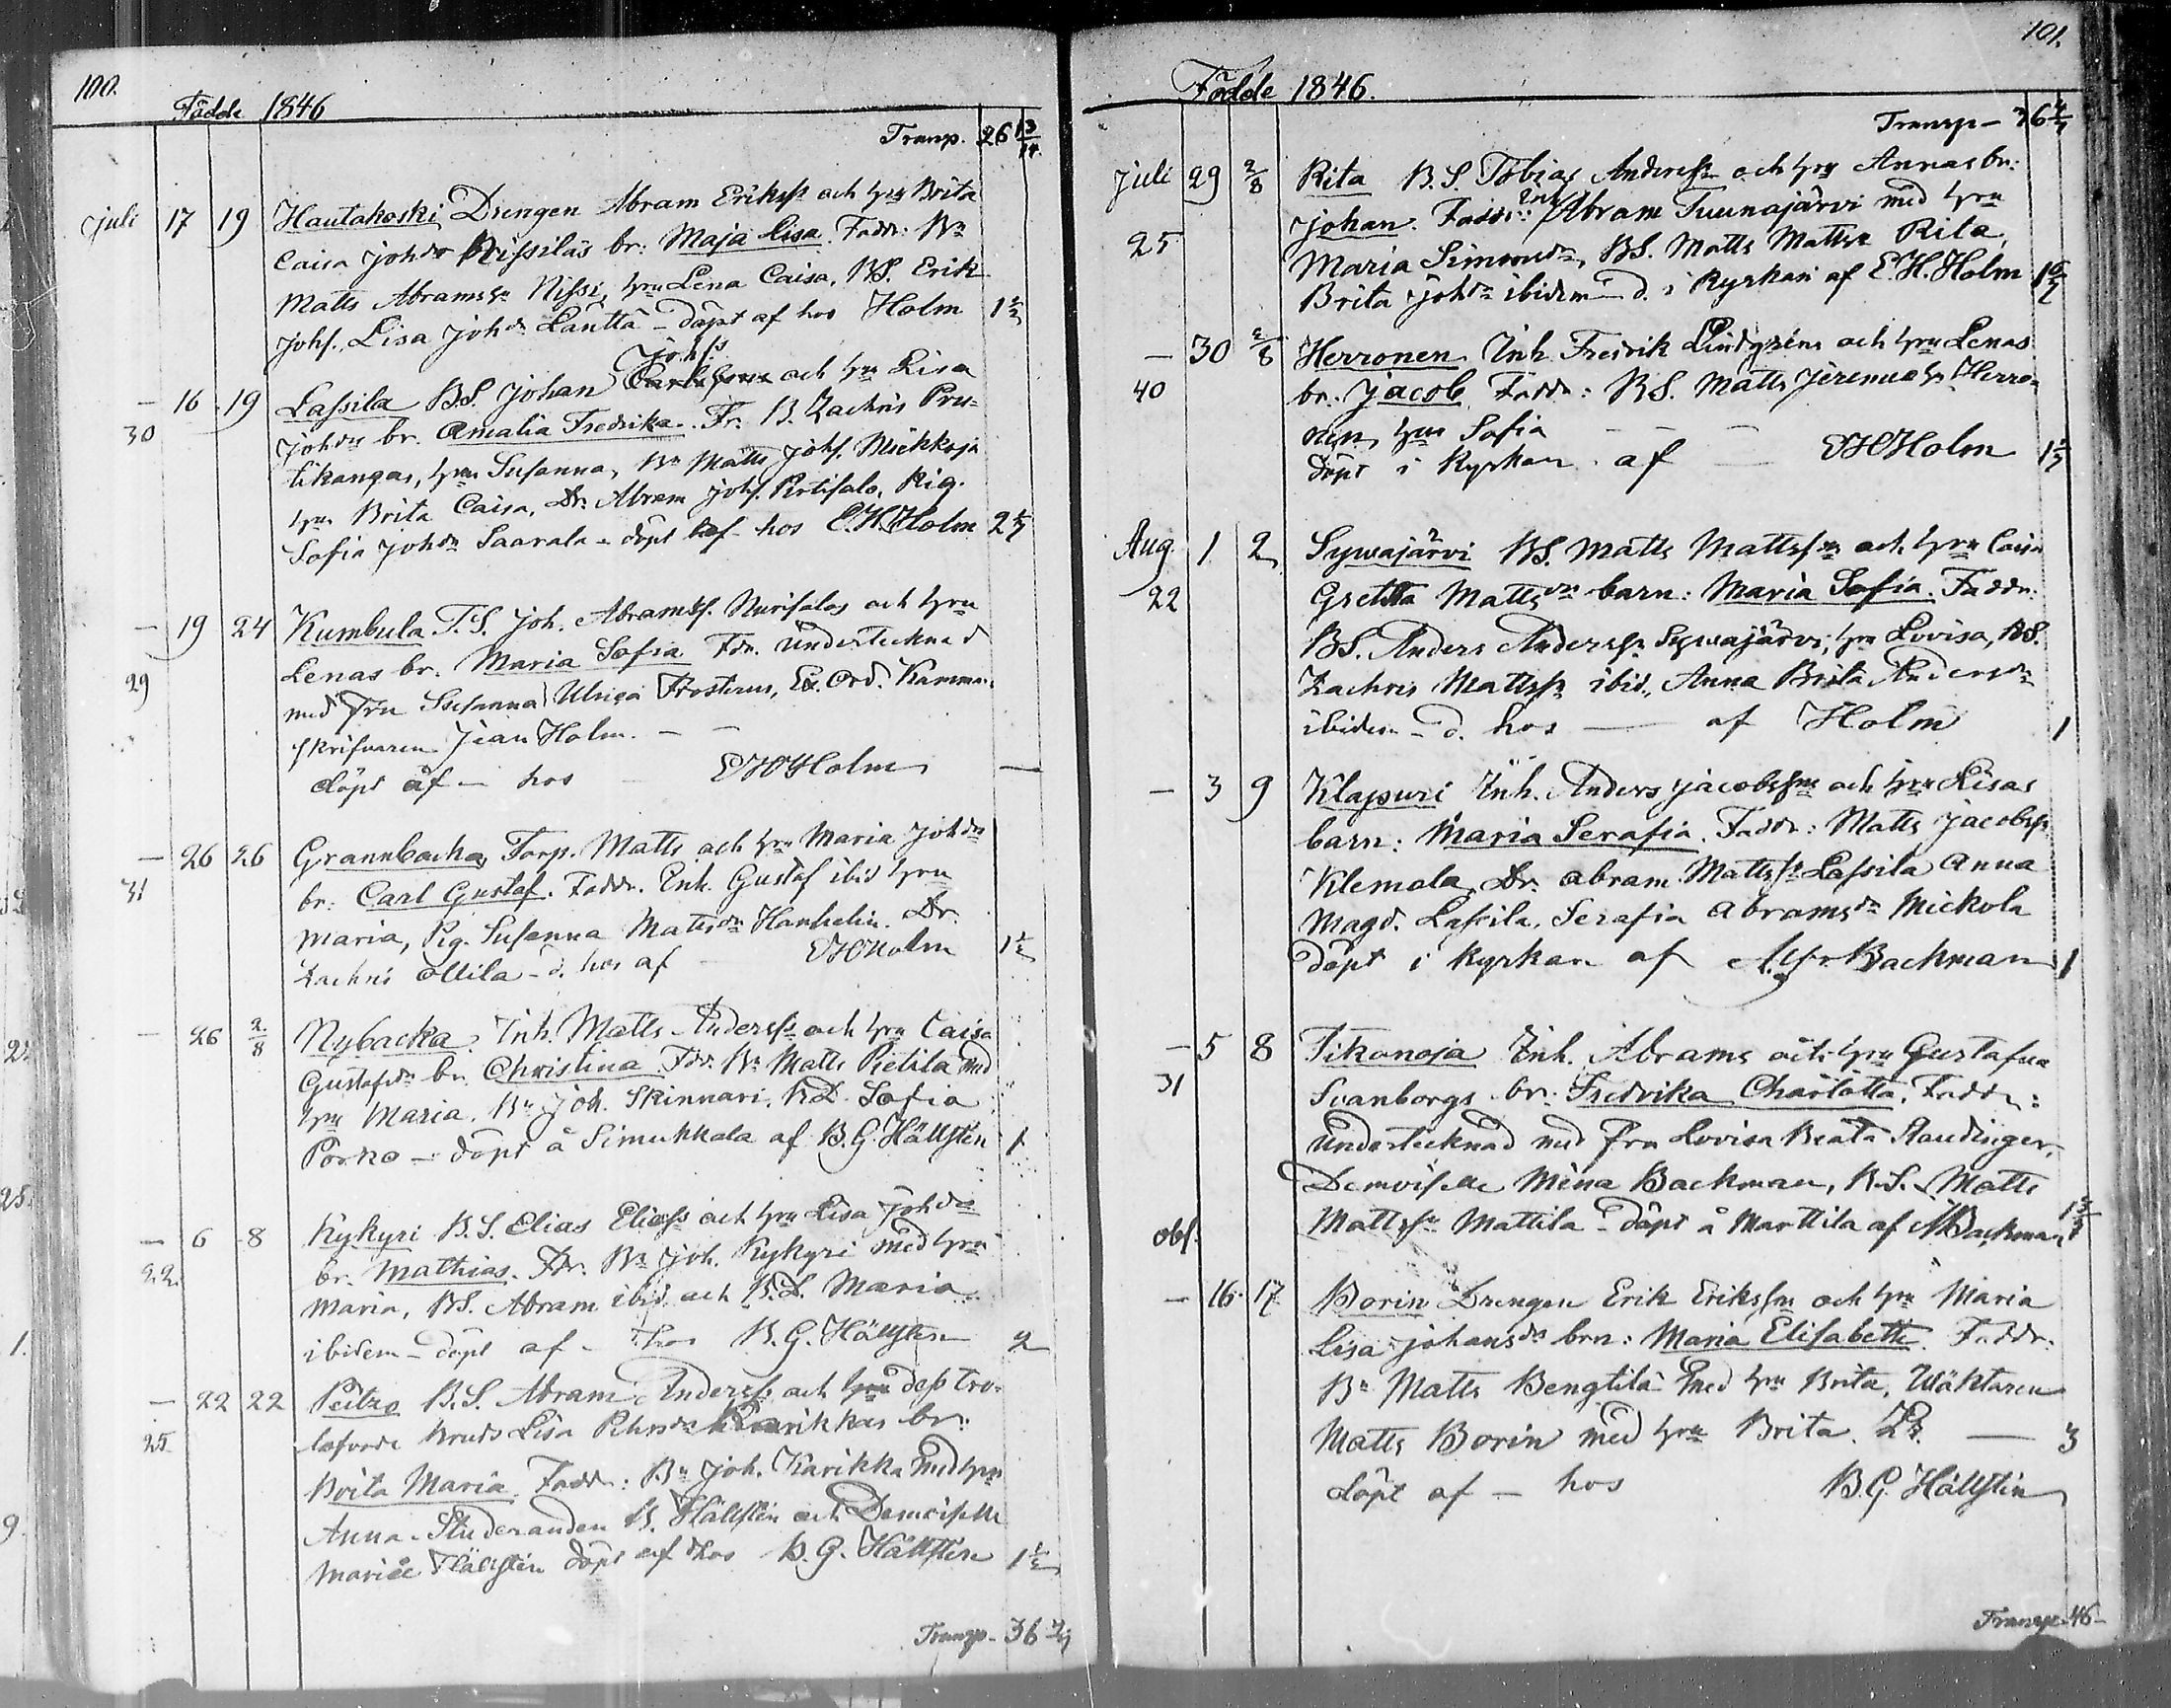 100.
Födde 1846
Transp. 26 13/14
Juli 17 19 Hautakoski Drengen Abram Erikss. och hru Brita
Caisa Johdr Nissiläs br: Maja Lisa. Fadd: Bn
Matts Abramss. Nissi, hru Lena Caisa, BS. Erik
Johs. Lisa Johdr Läntta - döpt af hos Holm 1 1/2
Johss
— 16 19 Lassila B.S. Johan och hru Lisa
30 Johdr br. Amalia Fredrika. Fr. B. Zachris Pru-
tikangas, hru Susanna, Bn Matts Johs. Mickkoja
hru Brita Caisa, Dr. Abram Johs. Pig.
Sofia Johdr Saarala - döpt af hos E.H. Holm
— 19 24 Kumbula T.S. Joh. Abramss. och hru
29 Lenas br. Maria Sofia Fdr. Undertecknad
med Fru Susanna Ulrica Frosterus, Ex. Ord. Kamma-
skrifvaren Jean Holm. — —
döpt af — hos — EHHolm —
— 26 26 Grannbacka, Torp. Matts och hru Maria Johdr
31 br: Carl Gustaf. Faddr. Enk. Gustaf ibid hru
Maria, Pig. Susanna Mattsdr Hanhelin. Dr.
Zachris Ollila - d. hos af — EHHolm 1 1/2
— 26 2/8 Nybacka Inh. Matts Anderss. och hru Caisa
Gustafsdr br. Christina Fdr. Bn Matts Pietilä med
hru Maria. Bn Joh. Skinnari, B.D. Sofia
Porko — döpt å Simukkala af B.G. Hällsten 1
— 6 8 Kykyri B.S. Elias Eliass och hru Lisa Johdr
22. br. Mathias. Fdr. Bn Joh. Kykyri med hru
Maria, BS. Abram ibid. och B.D. Maria
ibidem — döpt af — hos B.G. Hällsten 2
— 22 22 Peitzo B.S. Abram Anderss. och dess tro-
25 lofvade bruds Lisa Karikkas br:
Brita Maria. Fadd: Bn Joh. Karikka med hru
Anna. Studeranden B. Hällsten och Demoiselle
Marie Hällsten döpt af hos B.G. Hällsten 1 1/2
Transp. 36 2/7
101.
Födde 1846.
Transp — 36 2/7
Juli 29 2/8 Rita B.S. Tobias Anderss och hru Annas br:
25 Johan. Faddr: Inh Abram Tuunajärvi med hru
Maria Simonsdr, BS. Matts Mattss. Rita,
Brita Johdr ibidem — d. i Kyrkan af E.H. Holm
— 30 2/8 Herronen Inh. Fredrik Lindgréns och hru Lenas
40 br. Jacob. Faddr: B.S. Matts Jeremiass. Herro-
nen, hru Sofia — — —
döpt i Kyrkan af — EHHolm
Aug. 1 2 Sywajärvi BS. Matts Mattsson och hru Caisa
22 Gretta Mattsdr barn: Maria Sofia. Faddr:
BS. Anders Anderss. Sywajärvi, hru Lovisa, BS.
Zachris Mattss. ibid., Anna Brita Andersdr
ibidem — d. hos — af Holm 1
— 3 9 Klapuri Inh. Anders Jacobsson och hru Lisas
barn: Maria Serafia. Faddr: Matts Jacobss.
Klemola, Dr. Abram Mattss. Lassila Anna
Magd. Lassila, Serafia Abramsdr Mickola
döpt i Kyrkan af Backman 1
— 5 8 Tikanoja Inh. Abrams och hru Gustafva
31 Svanborgs br: Fredrika Charlotta. Faddr:
Undertecknad med Fru Lovisa Beata Staudinger,
Demoiselle Mina Backman, B.S. Matts
obs. Mattss. Mattila — döpt å Marttila af Backman
— 16. 17 Borin Drengen Erik Eriksson och hru Maria
Lisa Johansdr brn: Maria Elisabeth. Faddr.
Bn Matts Bengtilä med hru Brita, Wäktaren
Matts Borin med hru Brita. — 3
döpt af — hos B.G. Hällsten
Transp. 46 —